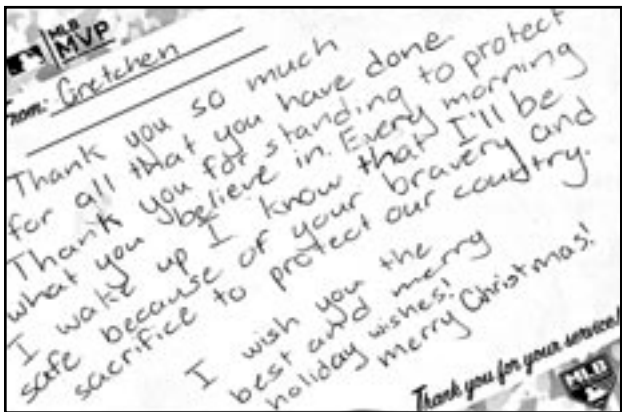 MLB
MVP
From: Gretchen
Thank you so much
for all that you have done.
Thank you for standing to protect
what you believe in. Every morning
I wake up I know that I'll be
safe because of your bravery and
sacrifice to protect our country.
I wish you the
best and merry
holiday wishes!
merry Christmas!
Thank you for your service!
MLB